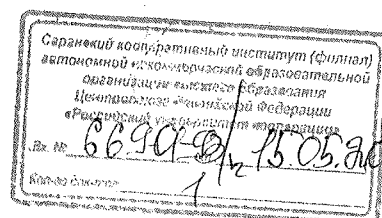 Саранский кооперативный институт (филиал)
автономной некоммерческой образовательной
организации высшего образования
Центросоюза Российской Федерации
«Российский университет кооперации»
Вх. №
Кол-во листов 1